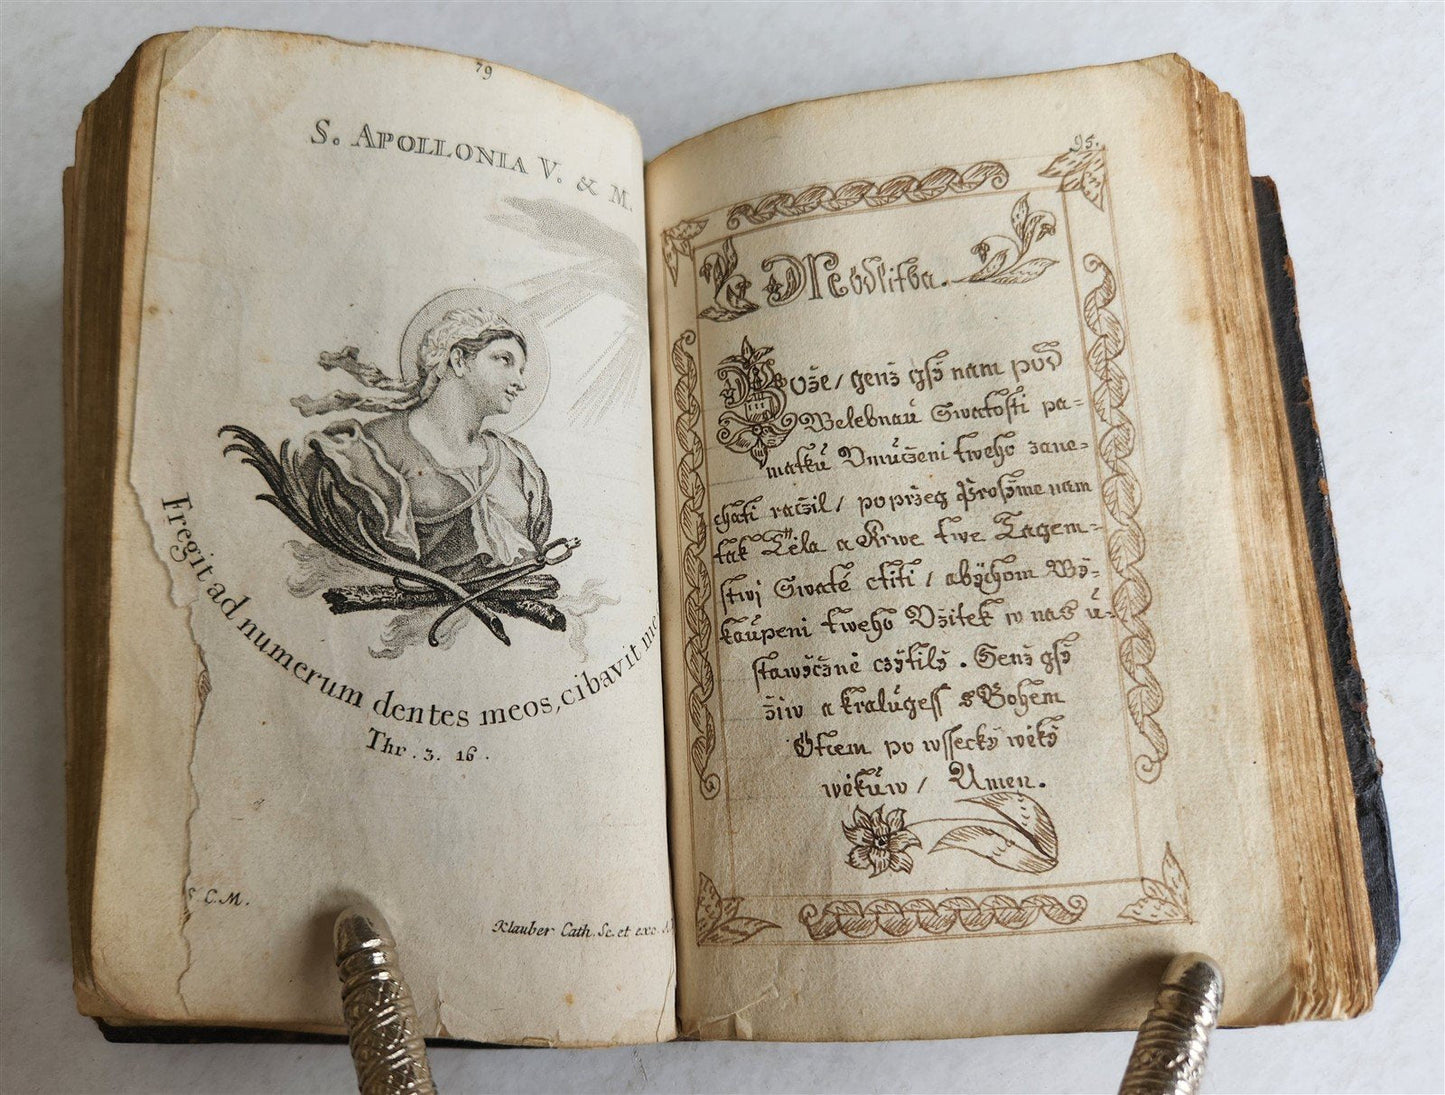 79
S. APOLLONIA V. & M.
Fregit ad numerum dentes meos, cibavit me
Thr. 3. 16.
S. C. M.
Klauber Cath. Sc. et exc.
95.
Modlitba.
Bože / genž gsy nam pod
Welebnaú Swatosti pa=
matkú Umučeni tweho zane=
chati račil / popřeg Prosyme nam
tak Těla a Krwe twe Tagem=
stwj Swaté ctiti / abychom Wy=
kaupeni tweho Užitek w nas ú=
stawyčně czytily. Genž gsy
žiw a kralúgess s Bohem
Otcem po wssecky wěky
wěkúw / Amen.